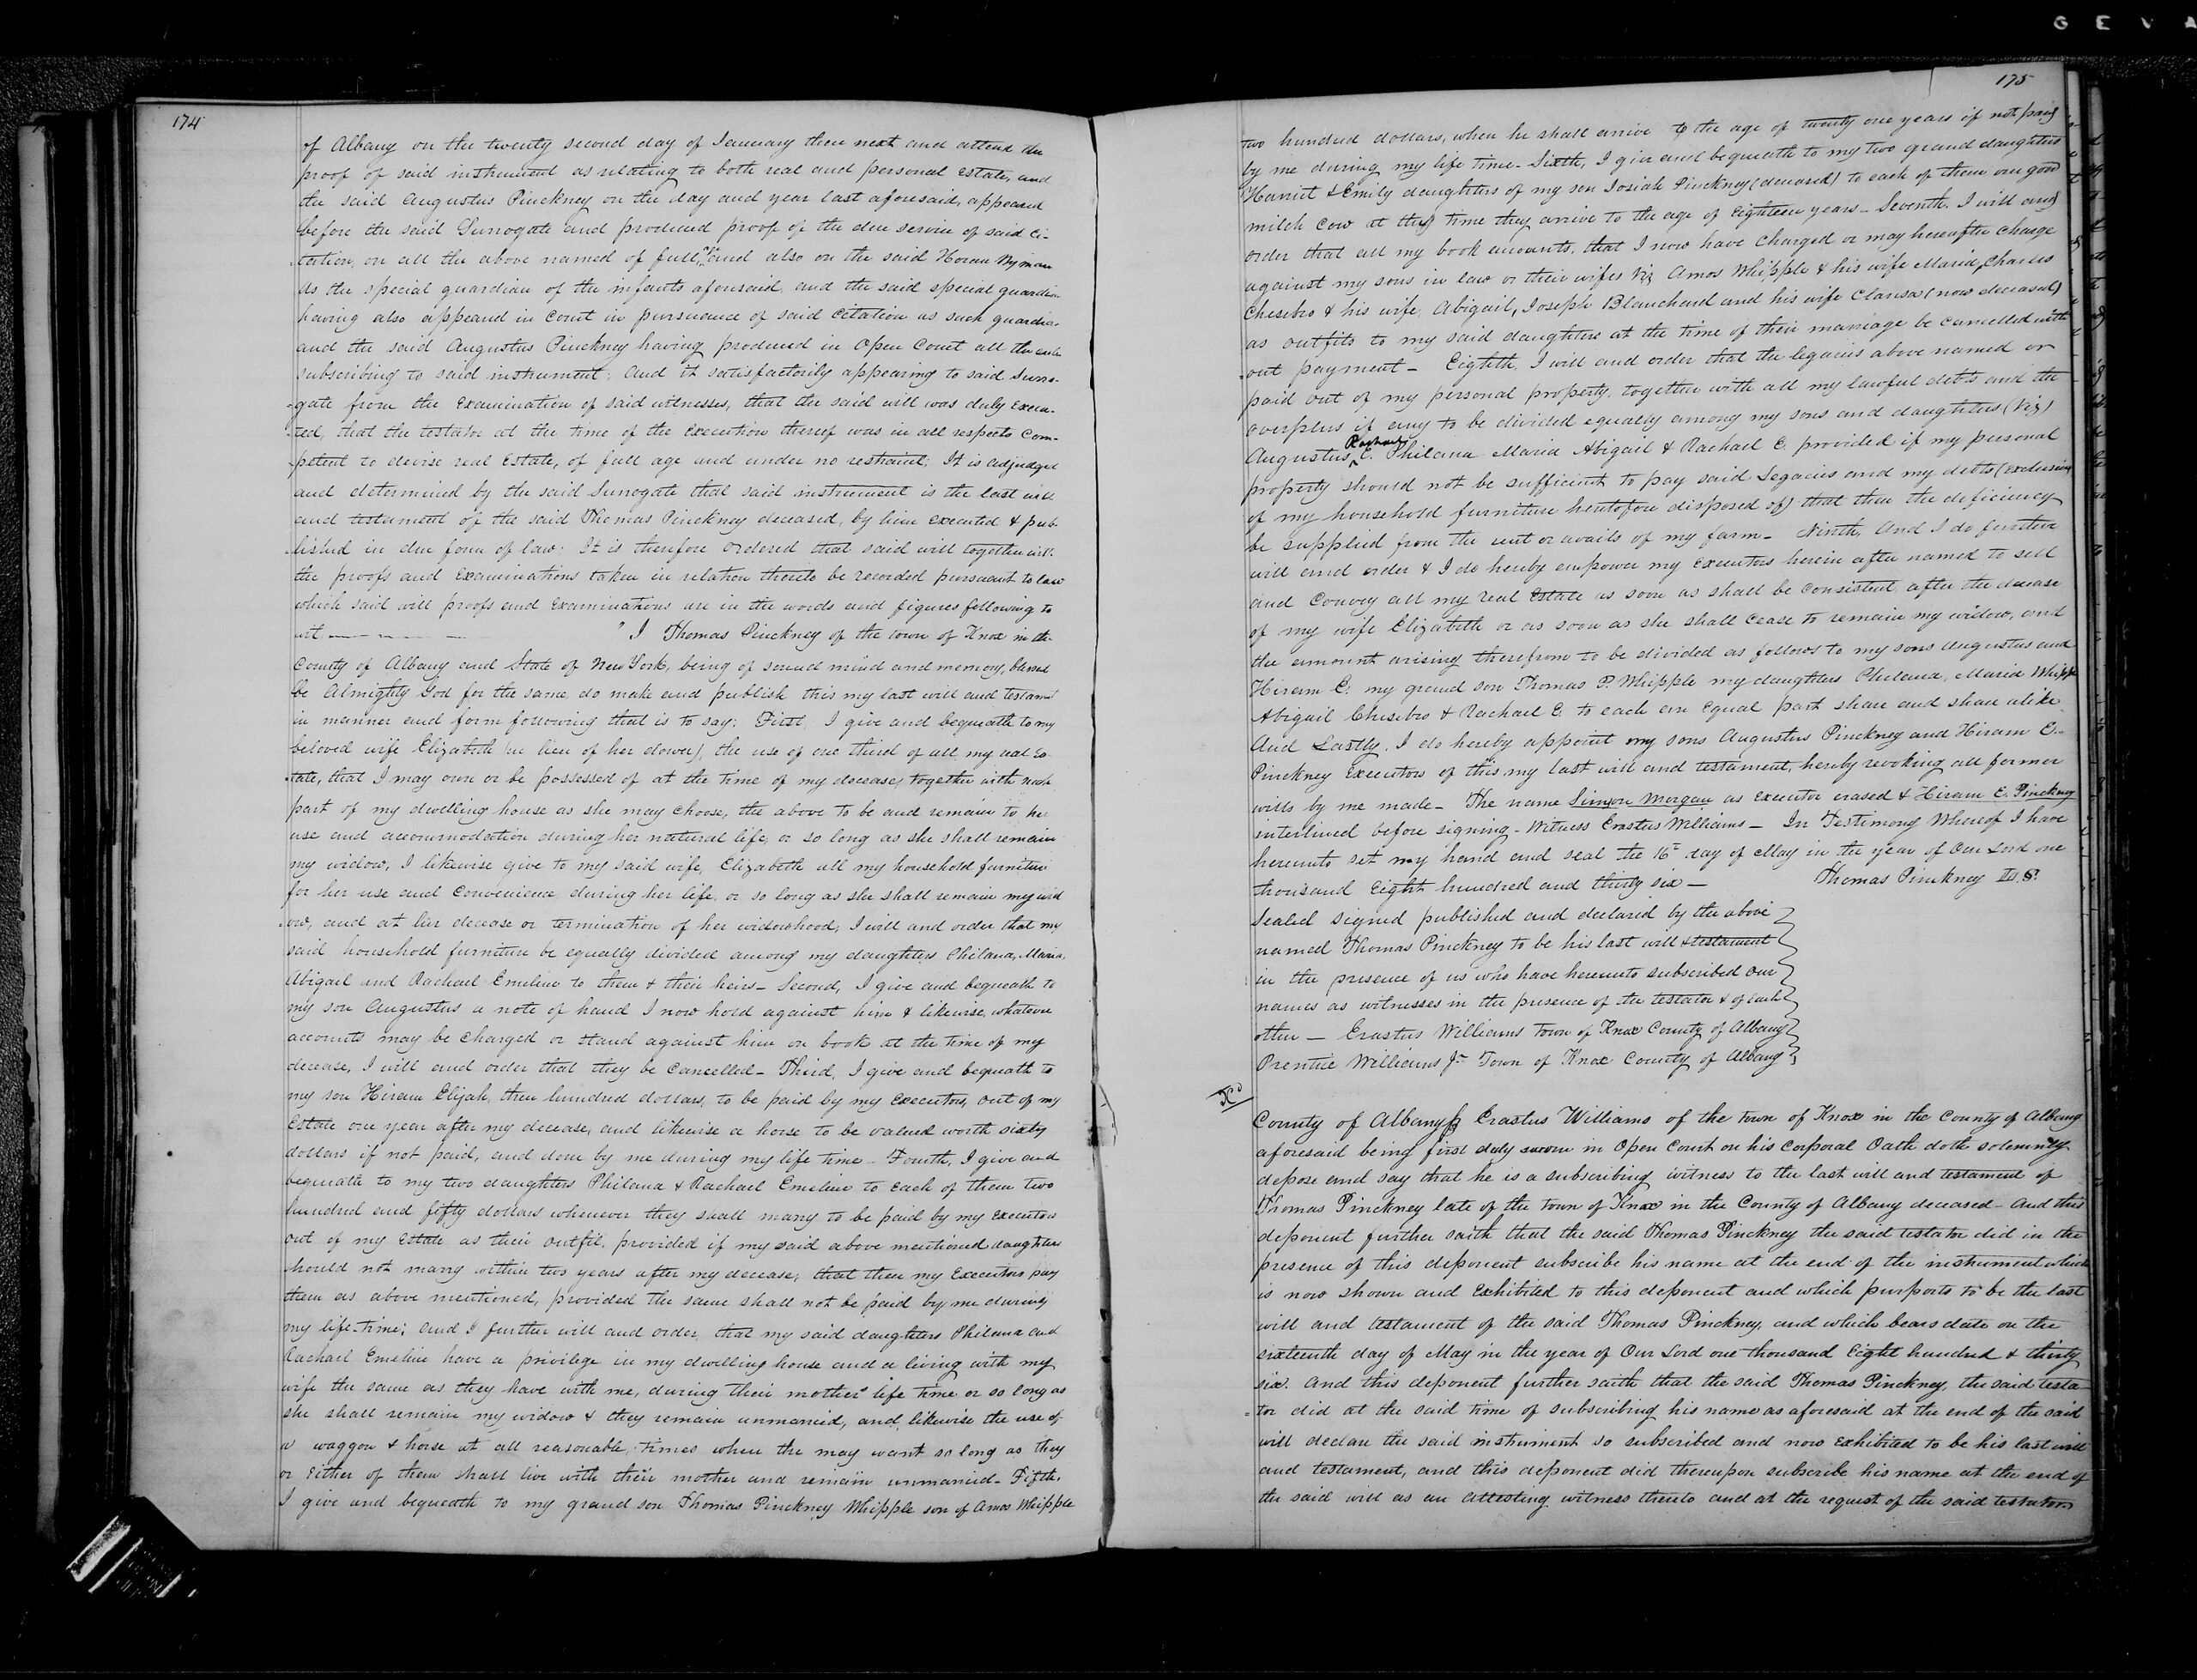 174
of Albany on the twenty second day of January then next and attend the
proof of said instrument as relating to both real and personal Estate, and
the said Augustus Pinckney on the day and year last aforesaid, appeared
before the said Surrogate and produced proof of the due service of said ci-
tation, on all the above named of full age and also on the said
As the special guardian of the infants aforesaid, and the said special guardian
having also appeared in Court in pursuance of said citation as such guardian
and the said Augustus Pinckney having produced in Open Court all the
subscribing to said instrument; And it satisfactorily appearing to said Surro-
-gate from the Examination of said witnesses, that the said will was duly Execu-
-ted, that the testator at the time of the Execution thereof was in all respects Com-
-petent to devise real Estate, of full age and under no restraint; It is adjudged
and determined by the said Surrogate that said instrument is the last will
and testament of the said Thomas Pinckney deceased, by him executed & pub-
-lished in due form of law; It is therefore Ordered that said will together with
the proofs and Examinations taken in relation thereto be recorded pursuant to law
which said will proofs and Examinations are in the words and figures following to
wit — — — — "I Thomas Pinckney of the town of Knox in the
County of Albany and State of New York, being of sound mind and memory, blessed
be Almighty God for the same, do make and publish this my last will and testament
in manner and form following that is to say; First, I give and bequeath to my
beloved wife Elizabeth (in lieu of her dower), the use of one third of all my real Es-
-tate, that I may own or be possessed of at the time of my decease, together with such
part of my dwelling house as she may choose, the above to be and remain to her
use and accommodation during her natural life, or so long as she shall remain
my widow, I likewise give to my said wife, Elizabeth all my household furniture
for her use and Convenience during her life, or so long as she shall remain my wid
-ow, and at her decease or termination of her widowhood, I will and order that my
said household furniture be equally divided among my daughters Philana, Maria,
Abigail and Rachael Emeline to them & their heirs— Second, I give and bequeath to
my son Augustus a note of hand I now hold against him & likewise, whatever
accounts may be charged or stand against him on book at the time of my
decease, I will and order that they be Cancelled— Third, I give and bequeath to
my son Hiram Elijah, three hundred dollars, to be paid by my Executors, out of my
Estate one year after my decease, and likewise a horse to be valued worth sixty
dollars if not paid, and done by me during my life time— Fourth, I give and
bequeath to my two daughters Philana & Rachael Emeline to Each of them two
hundred and fifty dollars whenever they shall marry to be paid by my Executors
out of my Estate as their outfit, provided if my said above mentioned daughters
should not marry within two years after my decease; that then my Executors pay
them as above mentioned, provided the same shall not be paid by me during
my life-time; and I further will and order, that my said daughters Philana and
Rachael Emeline have a privilege in my dwelling house and a living with my
wife the same as they have with me, during their mother's life time or so long as
she shall remain my widow & they remain unmarried, and likewise the use of
a waggon & horse at all reasonable times when the may want so long as they
or Either of them shall live with their mother and remain unmarried— Fifth,
I give and bequeath to my grand son Thomas Pinckney Whipple son of Amos Whipple
175
two hundred dollars, when he shall arrive to the age of twenty one years if not paid
by me during my life time— Sixth, I give and bequeath to my two grand daughters
Harriet & Emily daughters of my son Josiah Pinckney (deceased) to each of them one good
milch Cow at the time they arrive to the age of Eighteen years— Seventh, I will and
order that all my book accounts, that I now have Charged or may hereafter charge
against my sons in law or their wifes Viz Amos Whipple & his wife Maria, Charles
Chesebro & his wife Abigail, Joseph Blanchard and his wife Clarisa (now deceased)
as outfits to my said daughters at the time of their marriage be Cancelled with
-out payment— Eighth, I will and order that the legacies above named or
paid out of my personal property, together with all my lawful debts and the
overplus if any to be divided equally among my sons and daughters (Viz)
Augustus, E. Philana Maria Abigail & Rachael E. provided if my personal
property should not be sufficient to pay said Legacies and my debts (exclusive
of my household furniture heretofore disposed of) that then the deficiency
be supplied from the rent or avails of my farm— Ninth, And I do further
will and order & I do hereby empower my Executors herein after named to sell
and Convey all my real Estate as soon as shall be Consistent after the decease
of my wife Elizabeth or as soon as she shall Cease to remain my widow, and
the amount arising therefrom to be divided as follows to my sons Augustus and
Hiram E. my grand son Thomas P. Whipple my daughters Philana, Maria Whipple
Abigail Chesebro & Rachael E. to each an Equal part share and share alike
And Lastly, I do hereby appoint my sons Augustus Pinckney and Hiram E.
Pinckney Executors of this my last will and testament, hereby revoking all former
wills by me made— The name Simeon Morgan as Executor erased & Hiram E. Pinckney
interlined before signing— Witness Erastus Williams— In Testimony Whereof I have
hereunto set my hand and seal the 16th day of May in the year of Our Lord one
thousand Eight hundred and thirty six— Thomas Pinckney L.S.
Sealed signed published and declared by the above
named Thomas Pinckney to be his last will & testament
in the presence of us who have hereunto subscribed our
names as witnesses in the presence of the testator & of each
other — Erastus Williams Town of Knox County of Albany
Prentice Williams Jr Town of Knox County of Albany
County of Albany ss Erastus Williams of the town of Knox in the County of Albany
aforesaid being first duly sworn in Open Court on his Corporal Oath doth solemnly
depose and say that he is a subscribing witness to the last will and testament of
Thomas Pinckney late of the town of Knox in the County of Albany deceased— And this
deponent further saith that the said Thomas Pinckney the said testator did in the
presence of this deponent subscribe his name at the end of the instrument which
is now shown and Exhibited to this deponent and which purports to be the last
will and testament of the said Thomas Pinckney, and which bears date on the
sixteenth day of May in the year of Our Lord one thousand Eight hundred & thirty
six. And this deponent further saith that the said Thomas Pinckney, the said testa-
-tor did at the said time of subscribing his name as aforesaid at the end of the said
will declare the said instrument so subscribed and now Exhibited to be his last will
and testament, and this deponent did thereupon subscribe his name at the end of
the said will as an attesting witness thereto and at the request of the said testator
G E V A